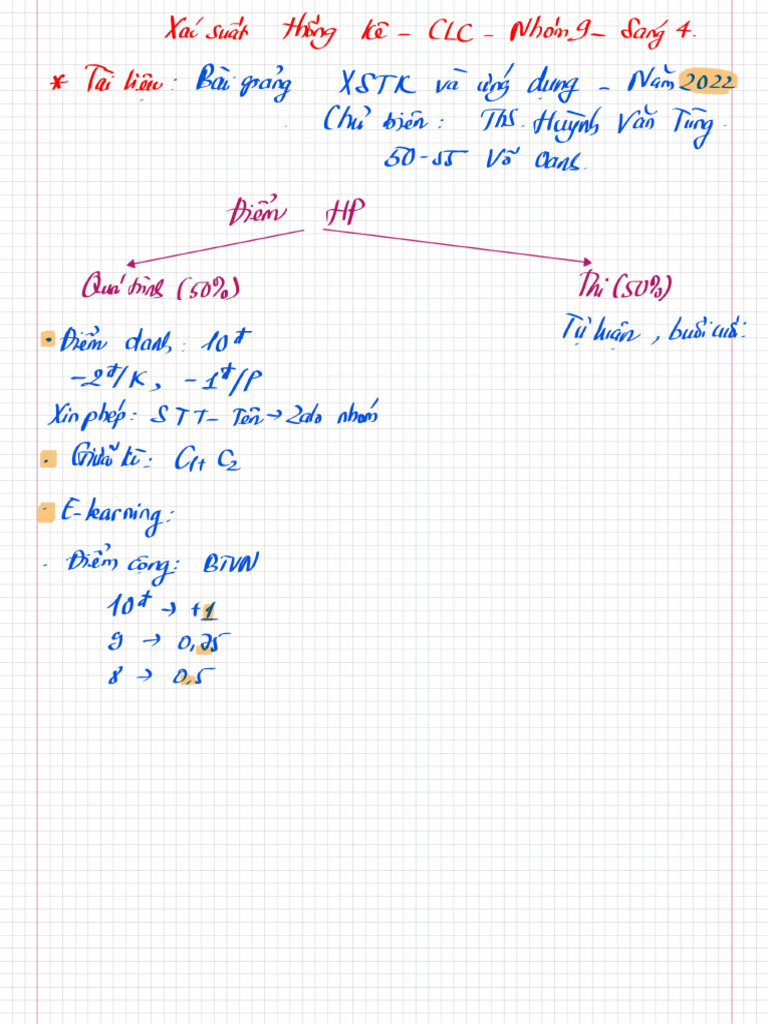 Xác suất thống kê - CLC - Nhóm 9 - Sáng 4.
* Tài liệu: Bài giảng XSTK và ứng dụng - Năm 2022
Chủ biên: Ths. Huỳnh Văn Tùng.
50-55 Võ Oanh.
Điểm HP
Quá trình (50%)
Thi (50%)
Tự luận, buổi cuối.
• Điểm danh: 10đ
-2đ/K, -1đ/P
Xin phép: STT - Tên → Zalo nhóm
• Giữa kì: C1+ C2
• E-learning:
• Điểm cộng: BTVN
10đ → +1
9 → 0,75
8 → 0,5